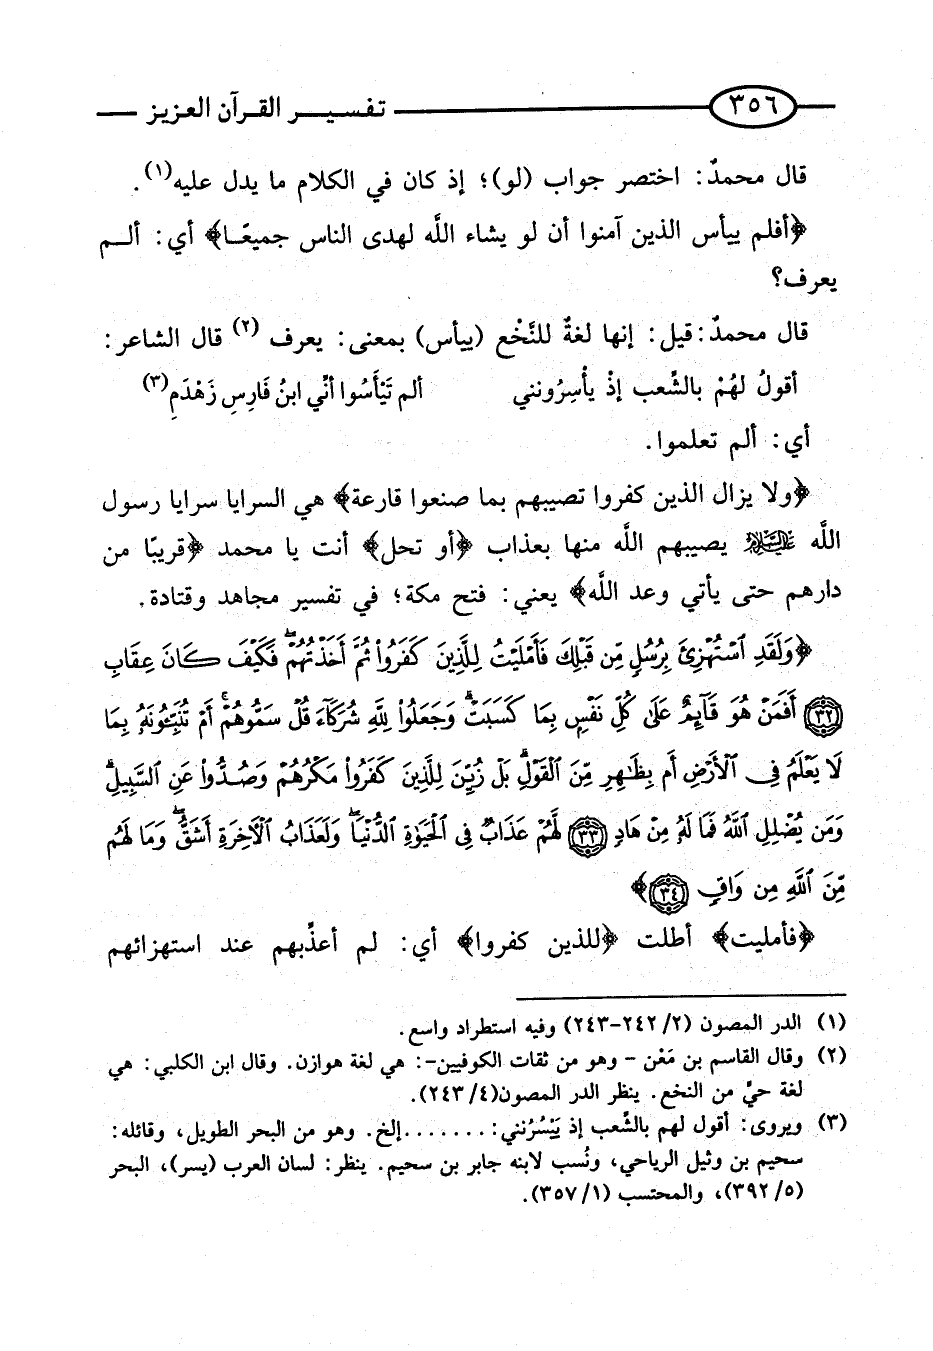 ٣٥٦ تفسير القرآن العزيز
قال محمدٌ: اختصر جواب (لو)؛ إذ كان في الكلام ما يدل عليه(١).
﴿أفلم ييأس الذين آمنوا أن لو يشاء اللَّه لهدى الناس جميعًا﴾ أي: ألم
يعرف؟
قال محمدٌ: قيل: إنها لغةٌ للنَّخْع (ييأس) بمعنى: يعرف (٢) قال الشاعر:
أقولُ لهُمْ بالشِّعب إذْ يأْسِرُونني ألم تَيْأَسُوا أنِّي ابنُ فَارِسِ زَهْدَمِ(٣)
أي: ألم تعلموا.
﴿ولا يزال الذين كفروا تصيبهم بما صنعوا قارعة﴾ هي السرايا سرايا رسول
اللَّه عليه السلام يصيبهم اللَّه منها بعذاب ﴿أو تحل﴾ أنت يا محمد ﴿قريبًا من
دارهم حتى يأتي وعد اللَّه﴾ يعني: فتح مكة؛ في تفسير مجاهد وقتادة.
﴿وَلَقَدِ ٱسْتُهْزِئَ بِرُسُلٍ مِّن قَبْلِكَ فَأَمْلَيْتُ لِلَّذِينَ كَفَرُوا۟ ثُمَّ أَخَذْتُهُمْ ۖ فَكَيْفَ كَانَ عِقَابِ
٣٢ أَفَمَنْ هُوَ قَآئِمٌ عَلَىٰ كُلِّ نَفْسٍۭ بِمَا كَسَبَتْ ۗ وَجَعَلُوا۟ لِلَّهِ شُرَكَآءَ قُلْ سَمُّوهُمْ ۚ أَمْ تُنَبِّـُٔونَهُۥ بِمَا
لَا يَعْلَمُ فِى ٱلْأَرْضِ أَم بِظَـٰهِرٍ مِّنَ ٱلْقَوْلِ ۗ بَلْ زُيِّنَ لِلَّذِينَ كَفَرُوا۟ مَكْرُهُمْ وَصُدُّوا۟ عَنِ ٱلسَّبِيلِ ۗ
وَمَن يُضْلِلِ ٱللَّهُ فَمَا لَهُۥ مِنْ هَادٍ ٣٣ لَّهُمْ عَذَابٌ فِى ٱلْحَيَوٰةِ ٱلدُّنْيَا ۖ وَلَعَذَابُ ٱلْـَٔاخِرَةِ أَشَقُّ ۖ وَمَا لَهُم
مِّنَ ٱللَّهِ مِن وَاقٍ ٣٤﴾
﴿فأمليت﴾ أطلت ﴿للذين كفروا﴾ أي: لم أعذِّبهم عند استهزائهم
(١) الدر المصون (٢/ ٢٤٢-٢٤٣) وفيه استطراد واسع.
(٢) وقال القاسم بن مَعْن - وهو من ثقات الكوفيين-: هي لغة هوازن. وقال ابن الكلبي: هي
لغة حيٍّ من النخع. ينظر الدر المصون(٤/ ٢٤٣).
(٣) ويروى: أقول لهم بالشِّعب إذ يَيْسُرُنني:........إلخ. وهو من البحر الطويل، وقائله:
سحيم بن وثيل الرياحي، ونُسب لابنه جابر بن سحيم. ينظر: لسان العرب (يسر)، البحر
(٥/ ٣٩٢)، والمحتسب (١/ ٣٥٧).